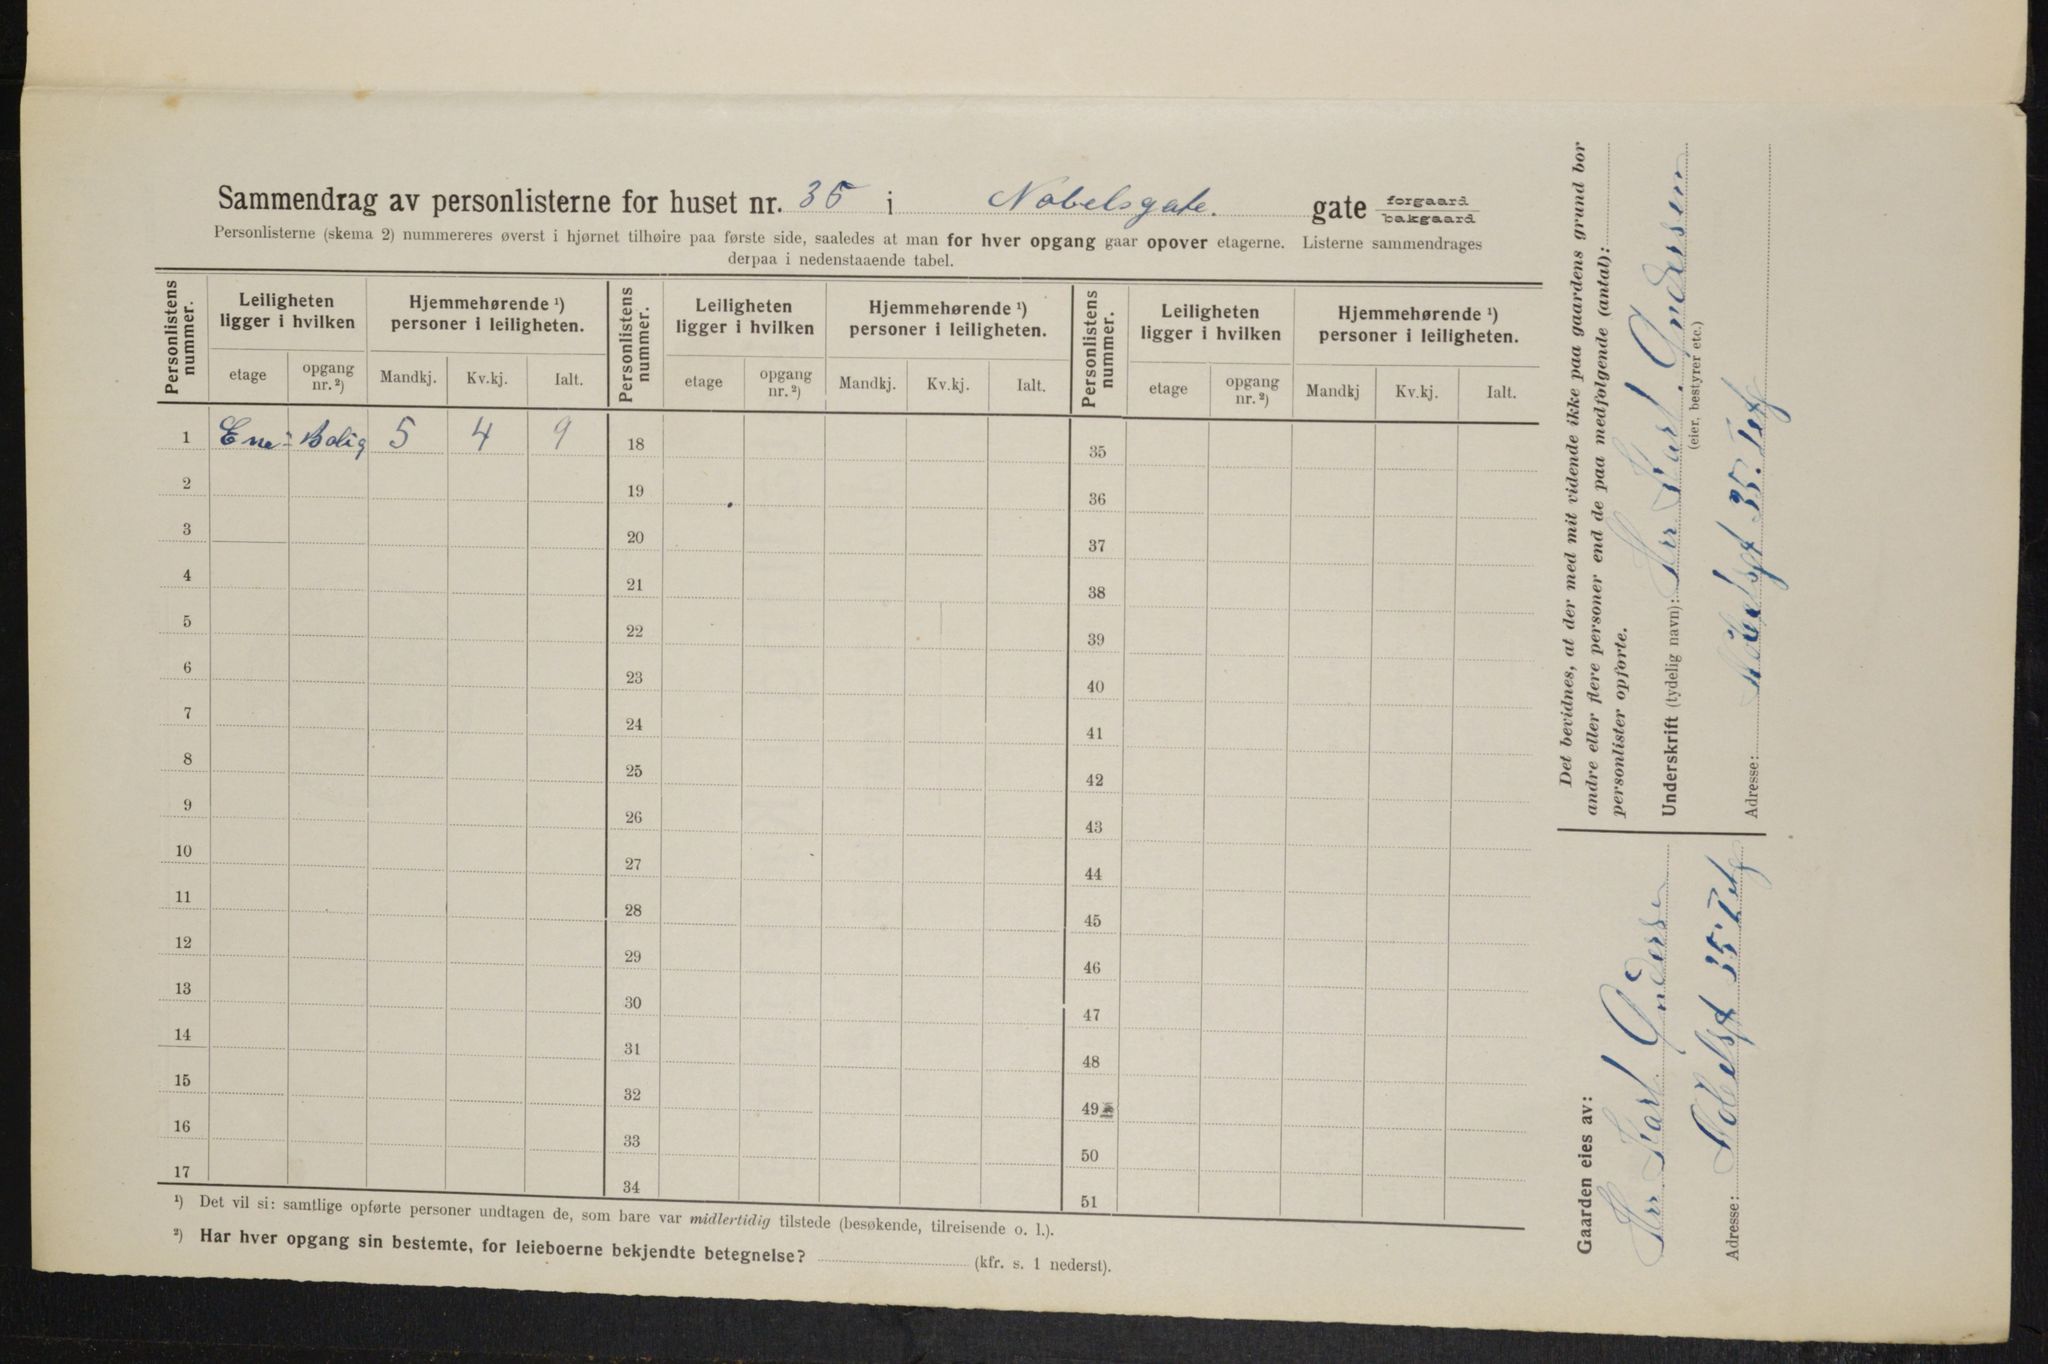 Sammendrag av personlisterne for huset nr. 35 i Nobelsgate. gate forgaard bakgaard
Personlisterne (skema 2) nummereres øverst i hjørnet tilhøire paa første side, saaledes at man for hver opgang gaar opover etagerne. Listerne sammendrages
derpaa i nedenstaaende tabel.
Personlistens nummer. Leiligheten ligger i hvilken Hjemmehørende ¹) personer i leiligheten. Personlistens nummer. Leiligheten ligger i hvilken Hjemmehørende ¹) personer i leiligheten. Personlistens nummer. Leiligheten ligger i hvilken Hjemmehørende ¹) personer i leiligheten.
etage opgang nr. ²) Mandkj. Kv.kj. Ialt. etage opgang nr. ²) Mandkj. Kv.kj. Ialt. etage opgang nr. ²) Mandkj Kv.kj. Ialt.
1 Ene- Bolig 5 4 9 18 35
2 19 36
3 20 37
4 21 38
5 22 39
6 23 40
7 24 41
8 25 42
9 26 43
10 27 44
11 28 45
12 29 46
13 30 47
14 31 48
15 32 49
16 33 50
17 34 51
¹) Det vil si: samtlige opførte personer undtagen de, som bare var midlertidig tilstede (besøkende, tilreisende o. l.).
²) Har hver opgang sin bestemte, for leieboerne bekjendte betegnelse? (kfr. s. 1 nederst).
Det bevidnes, at der med mit vidende ikke paa gaardens grund bor
andre eller flere personer end de paa medfølgende (antal):
personlister opførte.
Underskrift (tydelig navn): Hrr Karl Anderssen
(eier, bestyrer etc.)
Adresse: Nobelsgt 35
Gaarden eies av:
Hrr Karl Anderss
Adresse: Nobelsgt 35